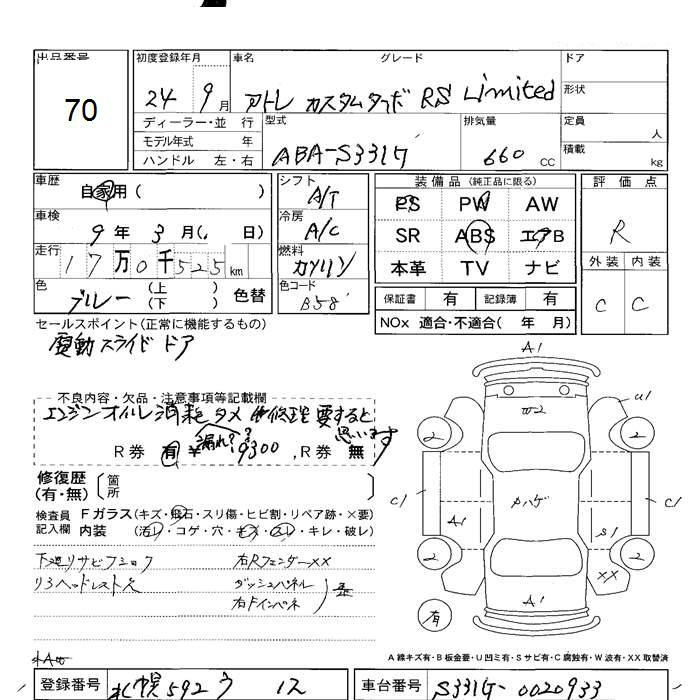 出品番号 初度登録年月 車名 グレード ドア
70 24 9月 アトレ カスタムターボ RS Limited 形状
ディーラー・並行 型式 排気量 定員 人
モデル年式 年 ABA-S331G 660 CC 積載 kg
ハンドル 左・右
車歴 自家用 ( ) シフト A/T 装備品(純正品に限る) 評価点
PS PW AW
車検 9年 3月( 日) 冷房 A/C SR ABS エアB R
走行 17万0千525km 燃料 ガソリン 本革 TV ナビ 外装 内装
色 ブルー (上) (下) 色替 色コード B58 保証書 有 記録簿 有 C C
NOx 適合・不適合( 年 月)
セールスポイント(正常に機能するもの)
電動スライドドア
不良内容・欠品・注意事項等記載欄
エンジンオイル消耗タメ 修理要すると
思います
漏れ??
R券 有 ¥9300 , R券 無
修復歴 (有・無) 箇所
検査員記入欄 Fガラス(キズ・飛石・スリ傷・ヒビ割・リペア跡・×要)
内装 (汚レ・コゲ・穴・キズ・スレ・キレ・破レ)
下廻リサビフショク 右Rフェンダー××
リ3ヘッドレスト欠 ダッシュパネル
右Fインパネ
A1
U1
W2
2 2
C1 C1
A1 S1
2 2
××
A1
有
A 線キズ有・B 板金要・U 凹ミ有・S サビ有・C 腐蝕有・W 波有・XX 取替済
登録番号 札幌592 ウ 車台番号 S331G-0020933